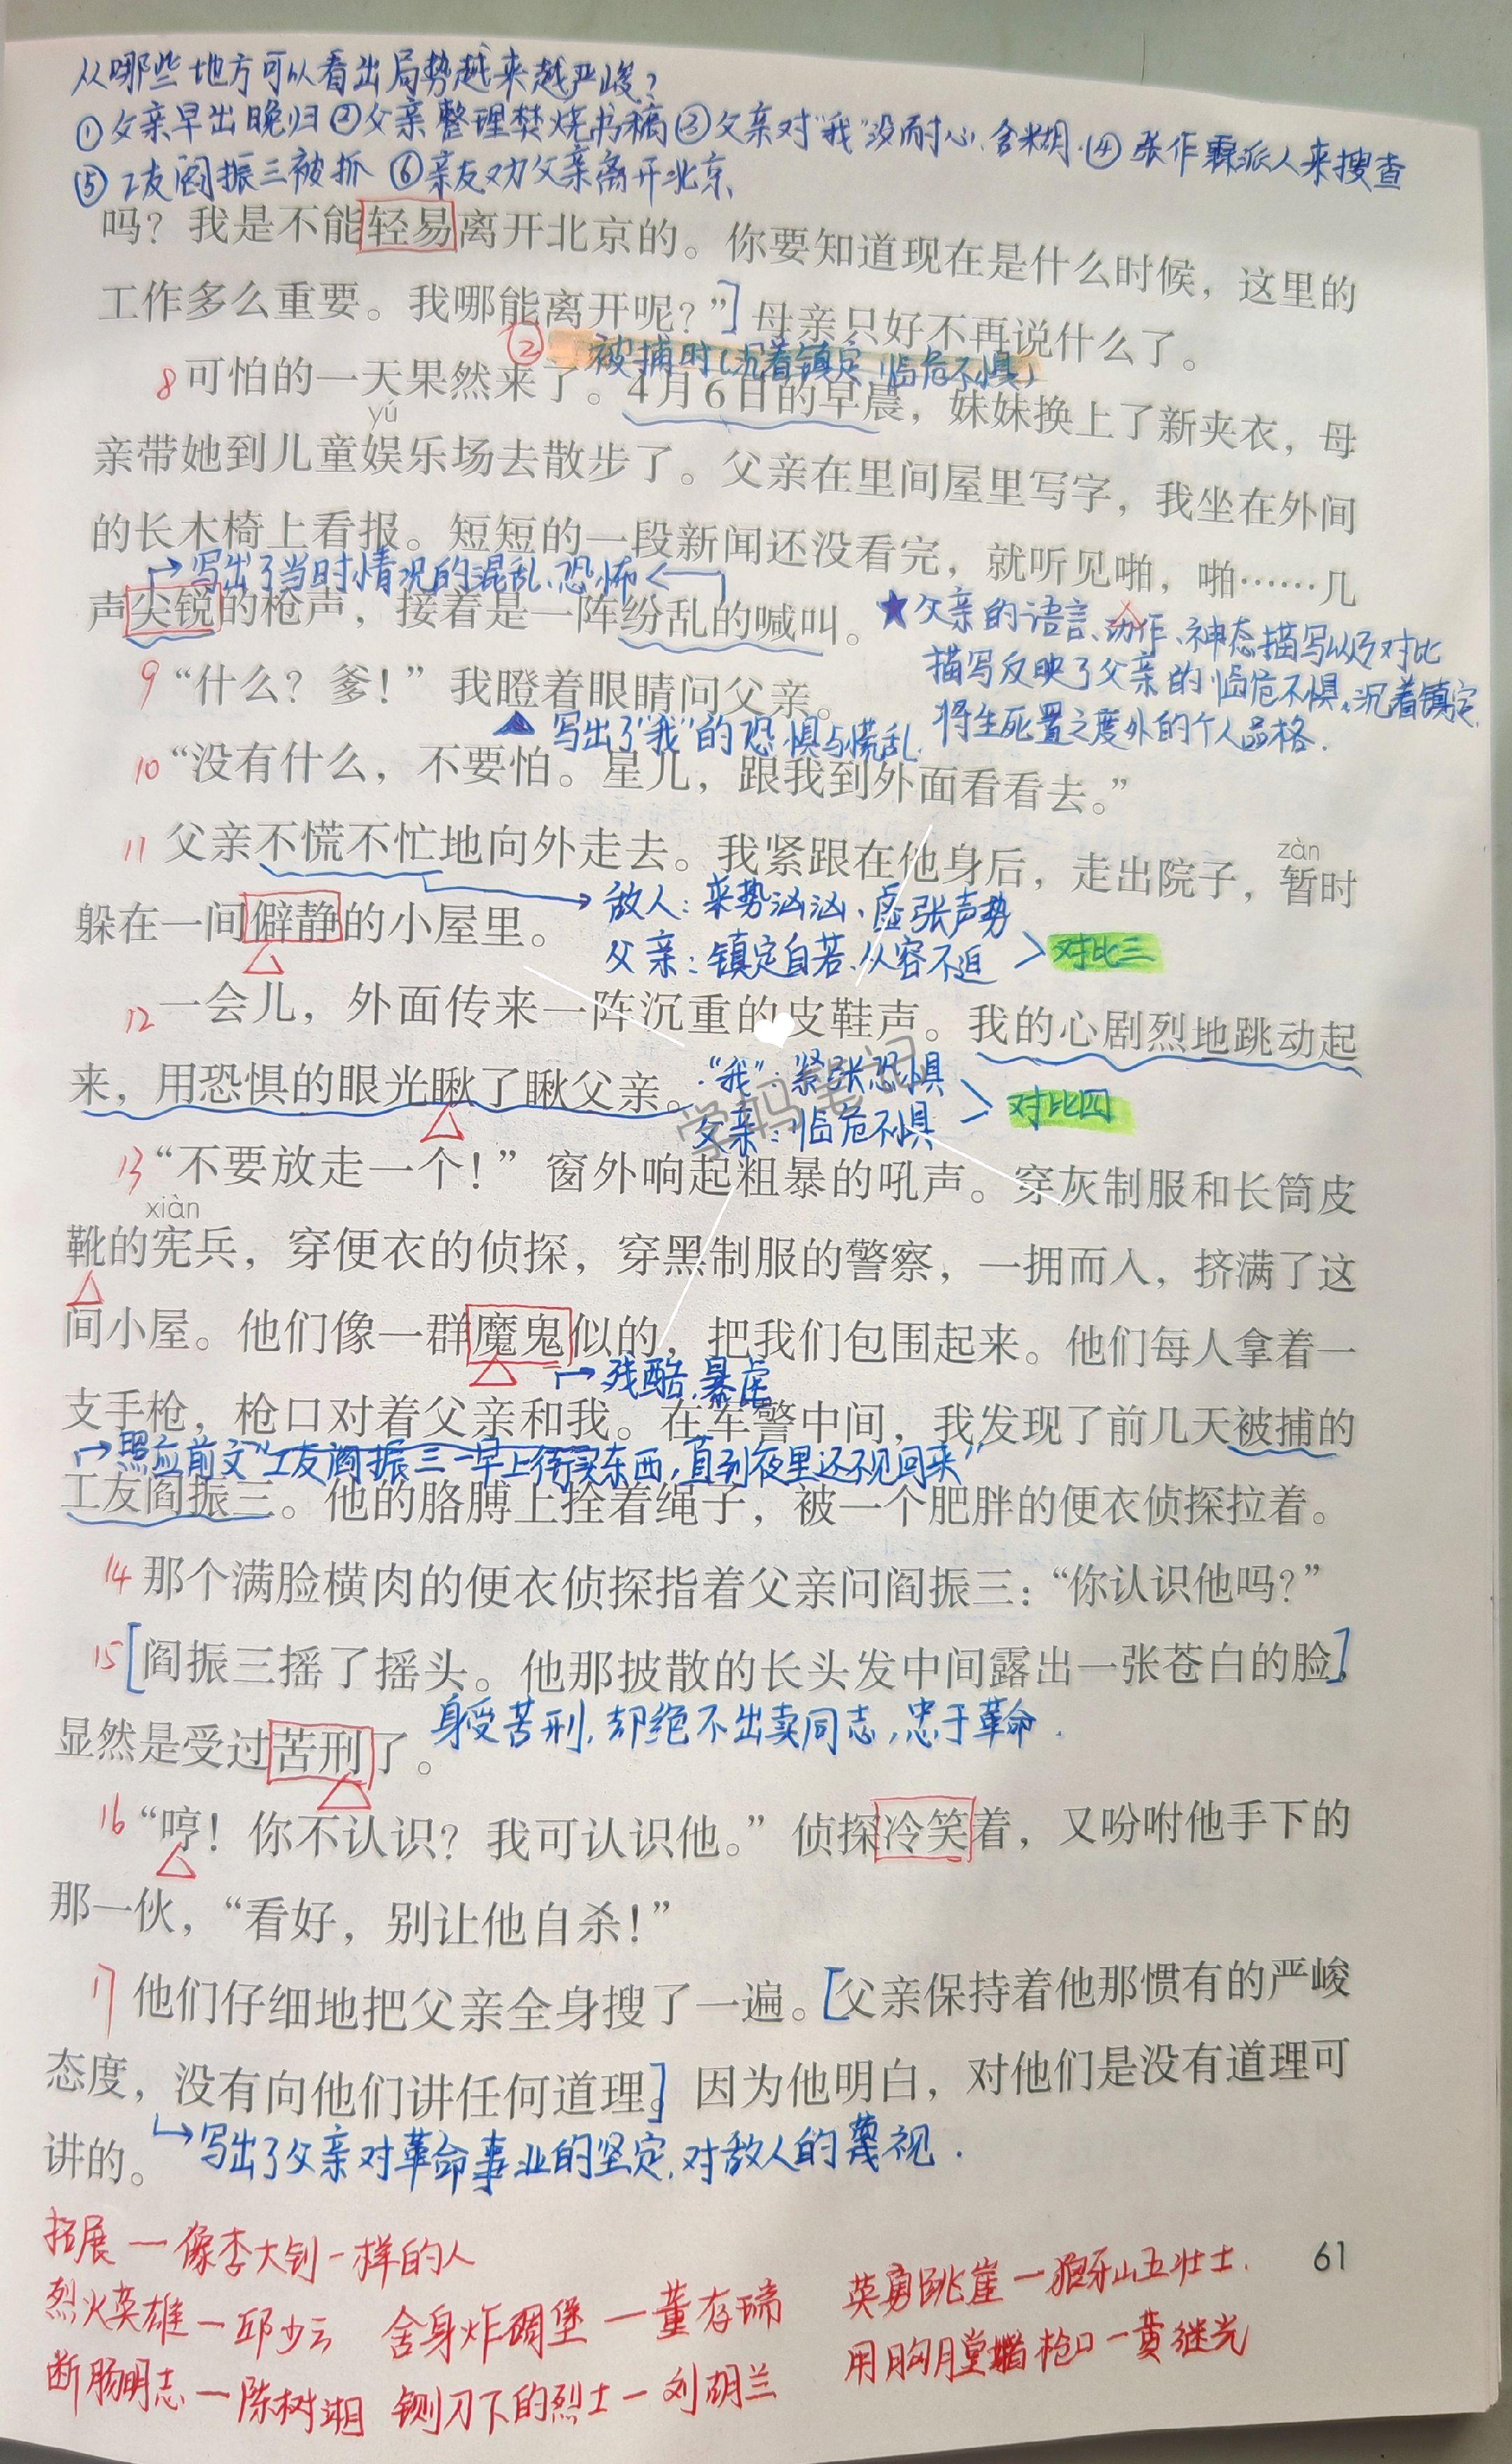 从哪些地方可以看出局势越来越严峻？
①父亲早出晚归②父亲整理焚烧书稿③父亲对“我”没耐心、含糊.④张作霖派人来搜查
⑤工友阎振三被抓 ⑥亲友劝父亲离开北京
吗？我是不能轻易离开北京的。你要知道现在是什么时候，这里的
工作多么重要。我哪能离开呢？”］母亲只好不再说什么了。
② 被捕时（沉着镇定，临危不惧）
8 可怕的一天果然来了。4月6日的早晨，妹妹换上了新夹衣，母
yú
亲带她到儿童娱乐场去散步了。父亲在里间屋里写字，我坐在外间
的长木椅上看报。短短的一段新闻还没看完，就听见啪，啪……几
写出了当时情况的混乱、恐怖
声尖锐的枪声，接着是一阵纷乱的喊叫。
★父亲的语言、动作、神态描写以及对比
描写反映了父亲的临危不惧、沉着镇定
将生死置之度外的个人品格.
9 “什么？爹！”我瞪着眼睛问父亲。
写出了“我”的恐惧与慌乱.
10 “没有什么，不要怕。星儿，跟我到外面看看去。”
zàn
11 父亲不慌不忙地向外走去。我紧跟在他身后，走出院子，暂时
敌人：来势汹汹、虚张声势
躲在一间僻静的小屋里。
父亲：镇定自若、从容不迫 对比三
12 一会儿，外面传来一阵沉重的皮鞋声。我的心剧烈地跳动起
来，用恐惧的眼光瞅了瞅父亲。
“我”：紧张恐惧
父亲：临危不惧 对比四
学妈笔记
13 “不要放走一个！”窗外响起粗暴的吼声。穿灰制服和长筒皮
xiàn
靴的宪兵，穿便衣的侦探，穿黑制服的警察，一拥而入，挤满了这
间小屋。他们像一群魔鬼似的，把我们包围起来。他们每人拿着一
残酷、暴虐
支手枪，枪口对着父亲和我。在军警中间，我发现了前几天被捕的
照应前文“工友阎振三一早上街买东西，直到夜里还不见回来”
工友阎振三。他的胳膊上拴着绳子，被一个肥胖的便衣侦探拉着。
14 那个满脸横肉的便衣侦探指着父亲问阎振三：“你认识他吗？”
15［阎振三摇了摇头。他那披散的长头发中间露出一张苍白的脸］，
显然是受过苦刑了。
身受苦刑，却绝不出卖同志，忠于革命.
16 “哼！你不认识？我可认识他。”侦探冷笑着，又吩咐他手下的
那一伙，“看好，别让他自杀！”
17 他们仔细地把父亲全身搜了一遍。［父亲保持着他那惯有的严峻
态度，没有向他们讲任何道理。］因为他明白，对他们是没有道理可
讲的。
写出了父亲对革命事业的坚定，对敌人的蔑视.
61
拓展一像李大钊一样的人
烈火英雄一邱少云 舍身炸碉堡一董存瑞 英勇跳崖一狼牙山五壮士.
断肠明志一陈树湘 铡刀下的烈士一刘胡兰 用胸膛堵枪口一黄继光